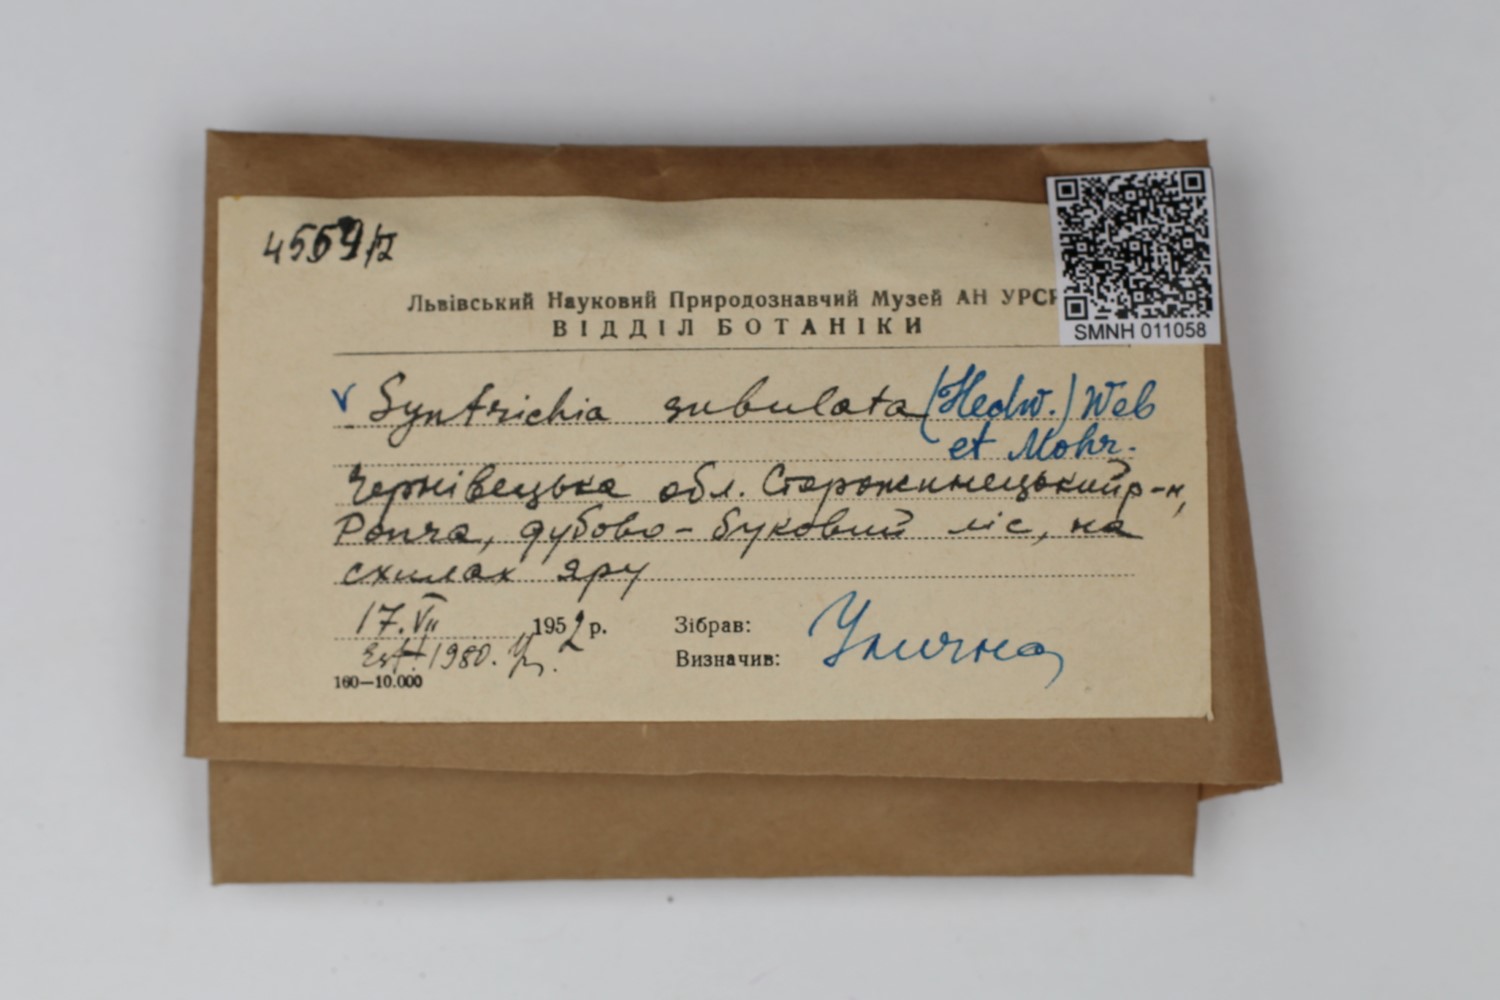 4559/II
SMNH 011058
Львівський Науковий Природознавчий Музей АН УРСР
ВІДДІЛ БОТАНІКИ
v Syntrichia subulata (Hedw.) Web
et Mohr.
Чернівецька обл. Сторожинецький р-н,
Ропча, дубово-буковий ліс, на
схилах яру
17.VII 1952 р.
Est. 1980. Ул.
Зібрав:
Визначив: Улична
160—10.000